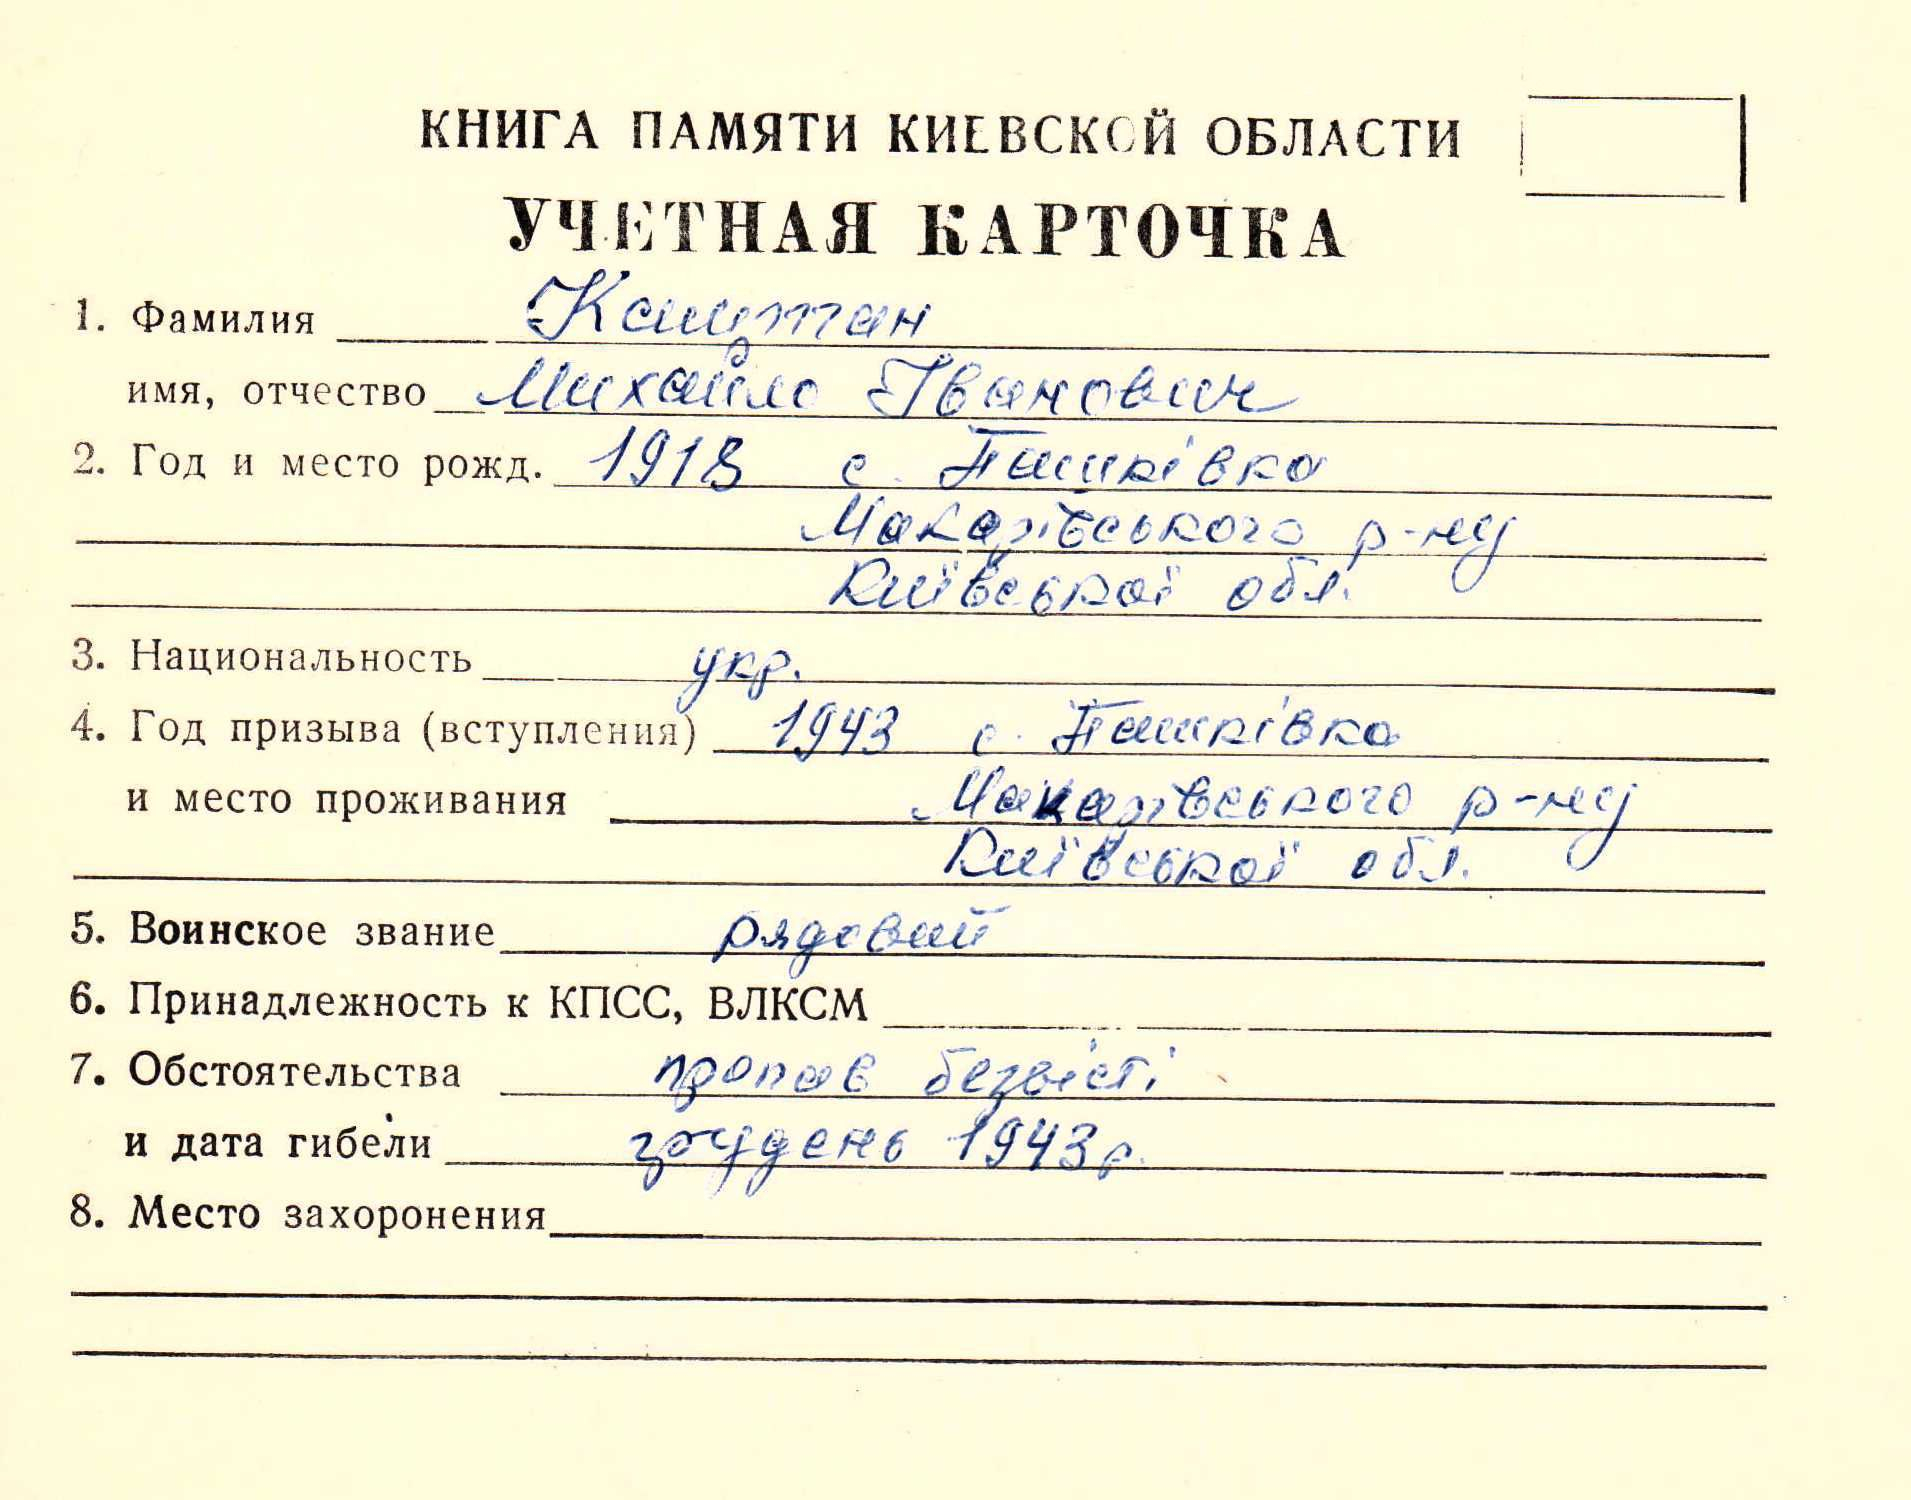 КНИГА ПАМЯТИ КИЕВСКОЙ ОБЛАСТИ
УЧЕТНАЯ КАРТОЧКА
1. Фамилия Каштан
имя, отчество Михайло Іванович
2. Год и место рожд. 1918 с. Пашківка
Макарівського р-ну
Київської обл.
3. Национальность укр.
4. Год призыва (вступления) 1943 с. Пашківка
и место проживания Макарівського р-ну
Київської обл.
5. Воинское звание рядовий
6. Принадлежность к КПСС, ВЛКСМ
7. Обстоятельства пропав безвісті
и дата гибели грудень 1943 р.
8. Место захоронения